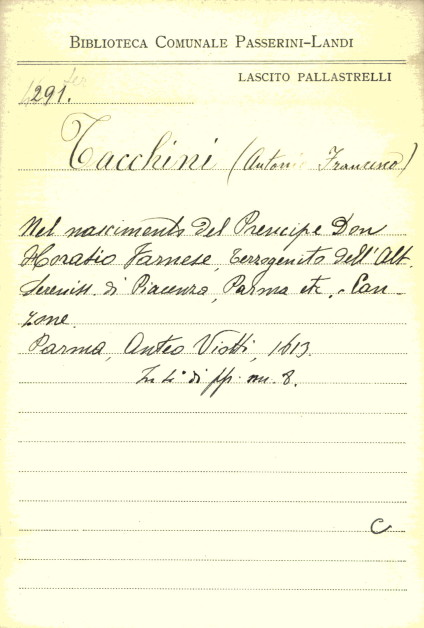 BIBLIOTECA COMUNALE PASSERINI-LANDI
LASCITO PALLASTRELLI
291.
Tacchini (Antonio Francesco)
Nel nascimento del Prencipe Don
Horatio Farnese, terzogenito dell'Alt.
Sereniss. di Piacenza, Parma etc. - Can-
zone.
Parma, Anteo Viotti, 1613.
In 4° di pp. nn. 8.
C